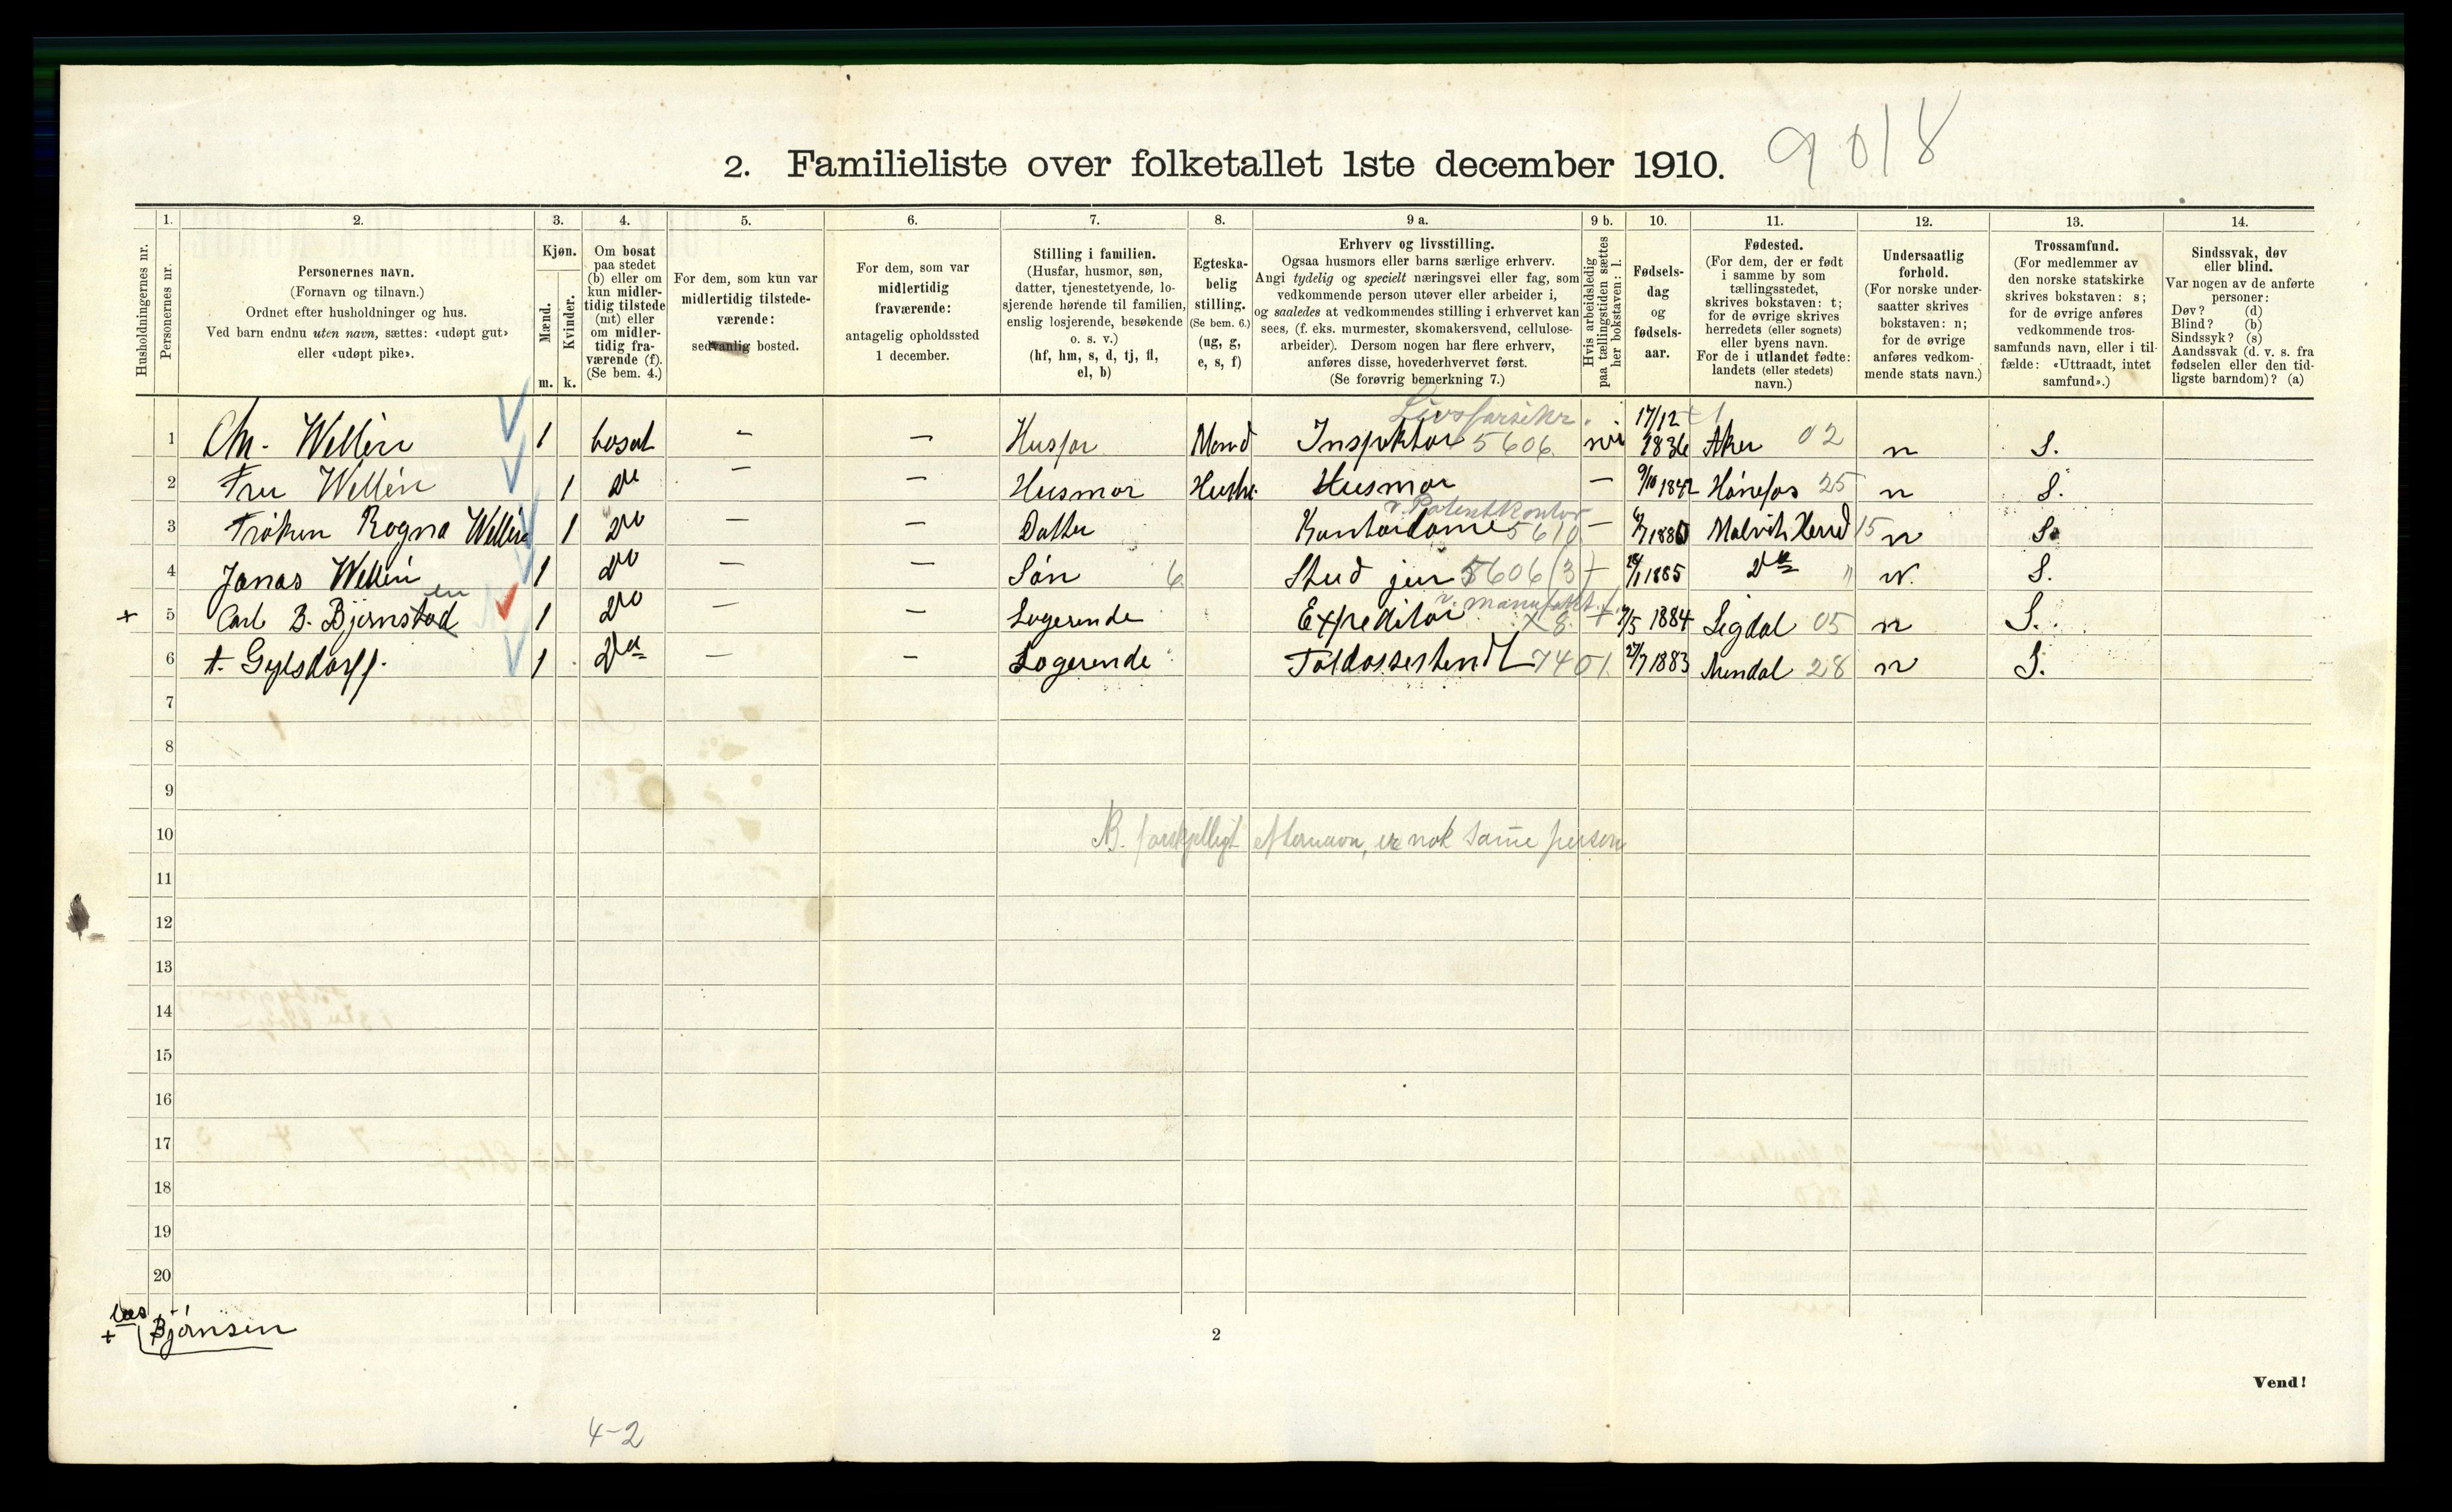 9018
2. Familieliste over folketallet 1ste december 1910.
Husholdningernes nr.
1.
Personernes nr.
2.
Personernes navn.
(Fornavn og tilnavn.)
Ordnet efter husholdninger og hus.
Ved barn endnu uten navn, sættes: «udøpt gut»
eller «udøpt pike».
3.
Kjøn.
Mænd.
Kvinder.
m. k.
4.
Om bosat
paa stedet
(b) eller om
kun midler-
tidig tilstede
(mt) eller
om midler-
tidig fra-
værende (f).
(Se bem. 4.)
5.
For dem, som kun var
midlertidig tilstede-
værende:
sedvanlig bosted.
6.
For dem, som var
midlertidig
fraværende:
antagelig opholdssted
1 december.
7.
Stilling i familien.
(Husfar, husmor, søn,
datter, tjenestetyende, lo-
sjerende hørende til familien,
enslig losjerende, besøkende
o. s. v.)
(hf, hm, s, d, tj, fl,
el, b)
8.
Egteska-
belig
stilling.
(Se bem. 6.)
(ug, g,
e, s, f)
9 a.
Erhverv og livsstilling.
Ogsaa husmors eller barns særlige erhverv.
Angi tydelig og specielt næringsvei eller fag, som
vedkommende person utøver eller arbeider i,
og saaledes at vedkommendes stilling i erhvervet kan
sees, (f. eks. murmester, skomakersvend, cellulose-
arbeider). Dersom nogen har flere erhverv,
anføres disse, hovederhvervet først.
(Se forøvrig bemerkning 7.)
9 b.
Hvis arbeidsledig
paa tællingstiden sættes
her bokstaven: l.
10.
Fødsels-
dag
og
fødsels-
aar.
11.
Fødested.
(For dem, der er født
i samme by som
tællingsstedet,
skrives bokstaven: t;
for de øvrige skrives
herredets (eller sognets)
eller byens navn.
For de i utlandet fødte:
landets (eller stedets)
navn.)
12.
Undersaatlig
forhold.
(For norske under-
saatter skrives
bokstaven: n;
for de øvrige
anføres vedkom-
mende stats navn.)
13.
Trossamfund.
(For medlemmer av
den norske statskirke
skrives bokstaven: s;
for de øvrige anføres
vedkommende tros-
samfunds navn, eller i til-
fælde: «Uttraadt, intet
samfund».)
14.
Sindssvak, døv
eller blind.
Var nogen av de anførte
personer:
Døv? (d)
Blind? (b)
Sindssyk? (s)
Aandssvak (d. v. s. fra
fødselen eller den tid-
ligste barndom)? (a)
1 Chr. Wellén 1 bosat — — Husfar Mand Inspektør 5606 17/12 1836 Aker 02 n S.
2 Fru Wellén 1 do — — Husmor Hustr. Husmor — 9/10 1842 Hønefos 25 n S.
v. Patentkontor
3 Frøken Ragna Wellén 1 do — — Datter Kontordame 5610 — 1880 Malvik Herred 15 n S.
4 Jonas Wellén 1 do — — Søn 6 Stud jur 5606 (3) — 1885 do " n. S.
en
v. manufakt.f.
+ 5 Carl B. Bjørnstad 1 do — Logerende Expeditør x8 /5 1884 Sigdal 05 n S.
6 t. Gylsdorff. 1 do — — Logerende Toldassestent 7401 27/7 1883 Arendal 28 n S.
7
8
9
10 NB. forskjelligt efternavn, er nok samme person
11
12
13
14
15
16
17
18
19
20
læs
+ Bjørnsen
2
Vend!
4-2